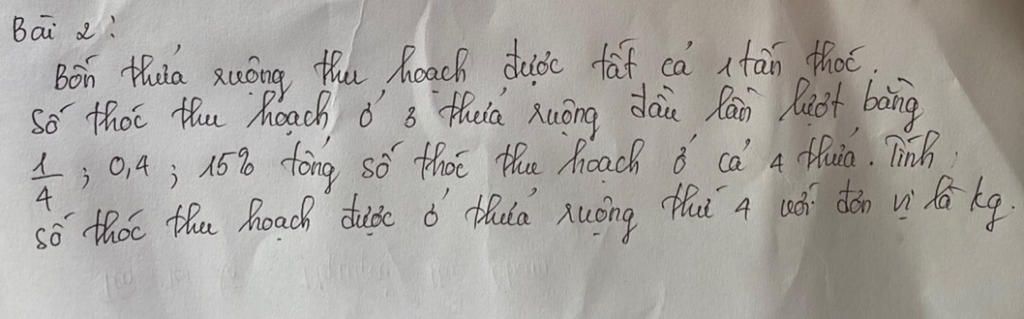 Bài 2:
Bốn thửa ruộng thu hoạch được tất cả 1 tấn thóc.
Số thóc thu hoạch ở 3 thửa ruộng đầu lần lượt bằng
1/4 ; 0,4 ; 15% tổng số thóc thu hoạch ở cả 4 thửa. Tính
số thóc thu hoạch được ở thửa ruộng thứ 4 với đơn vị là kg.